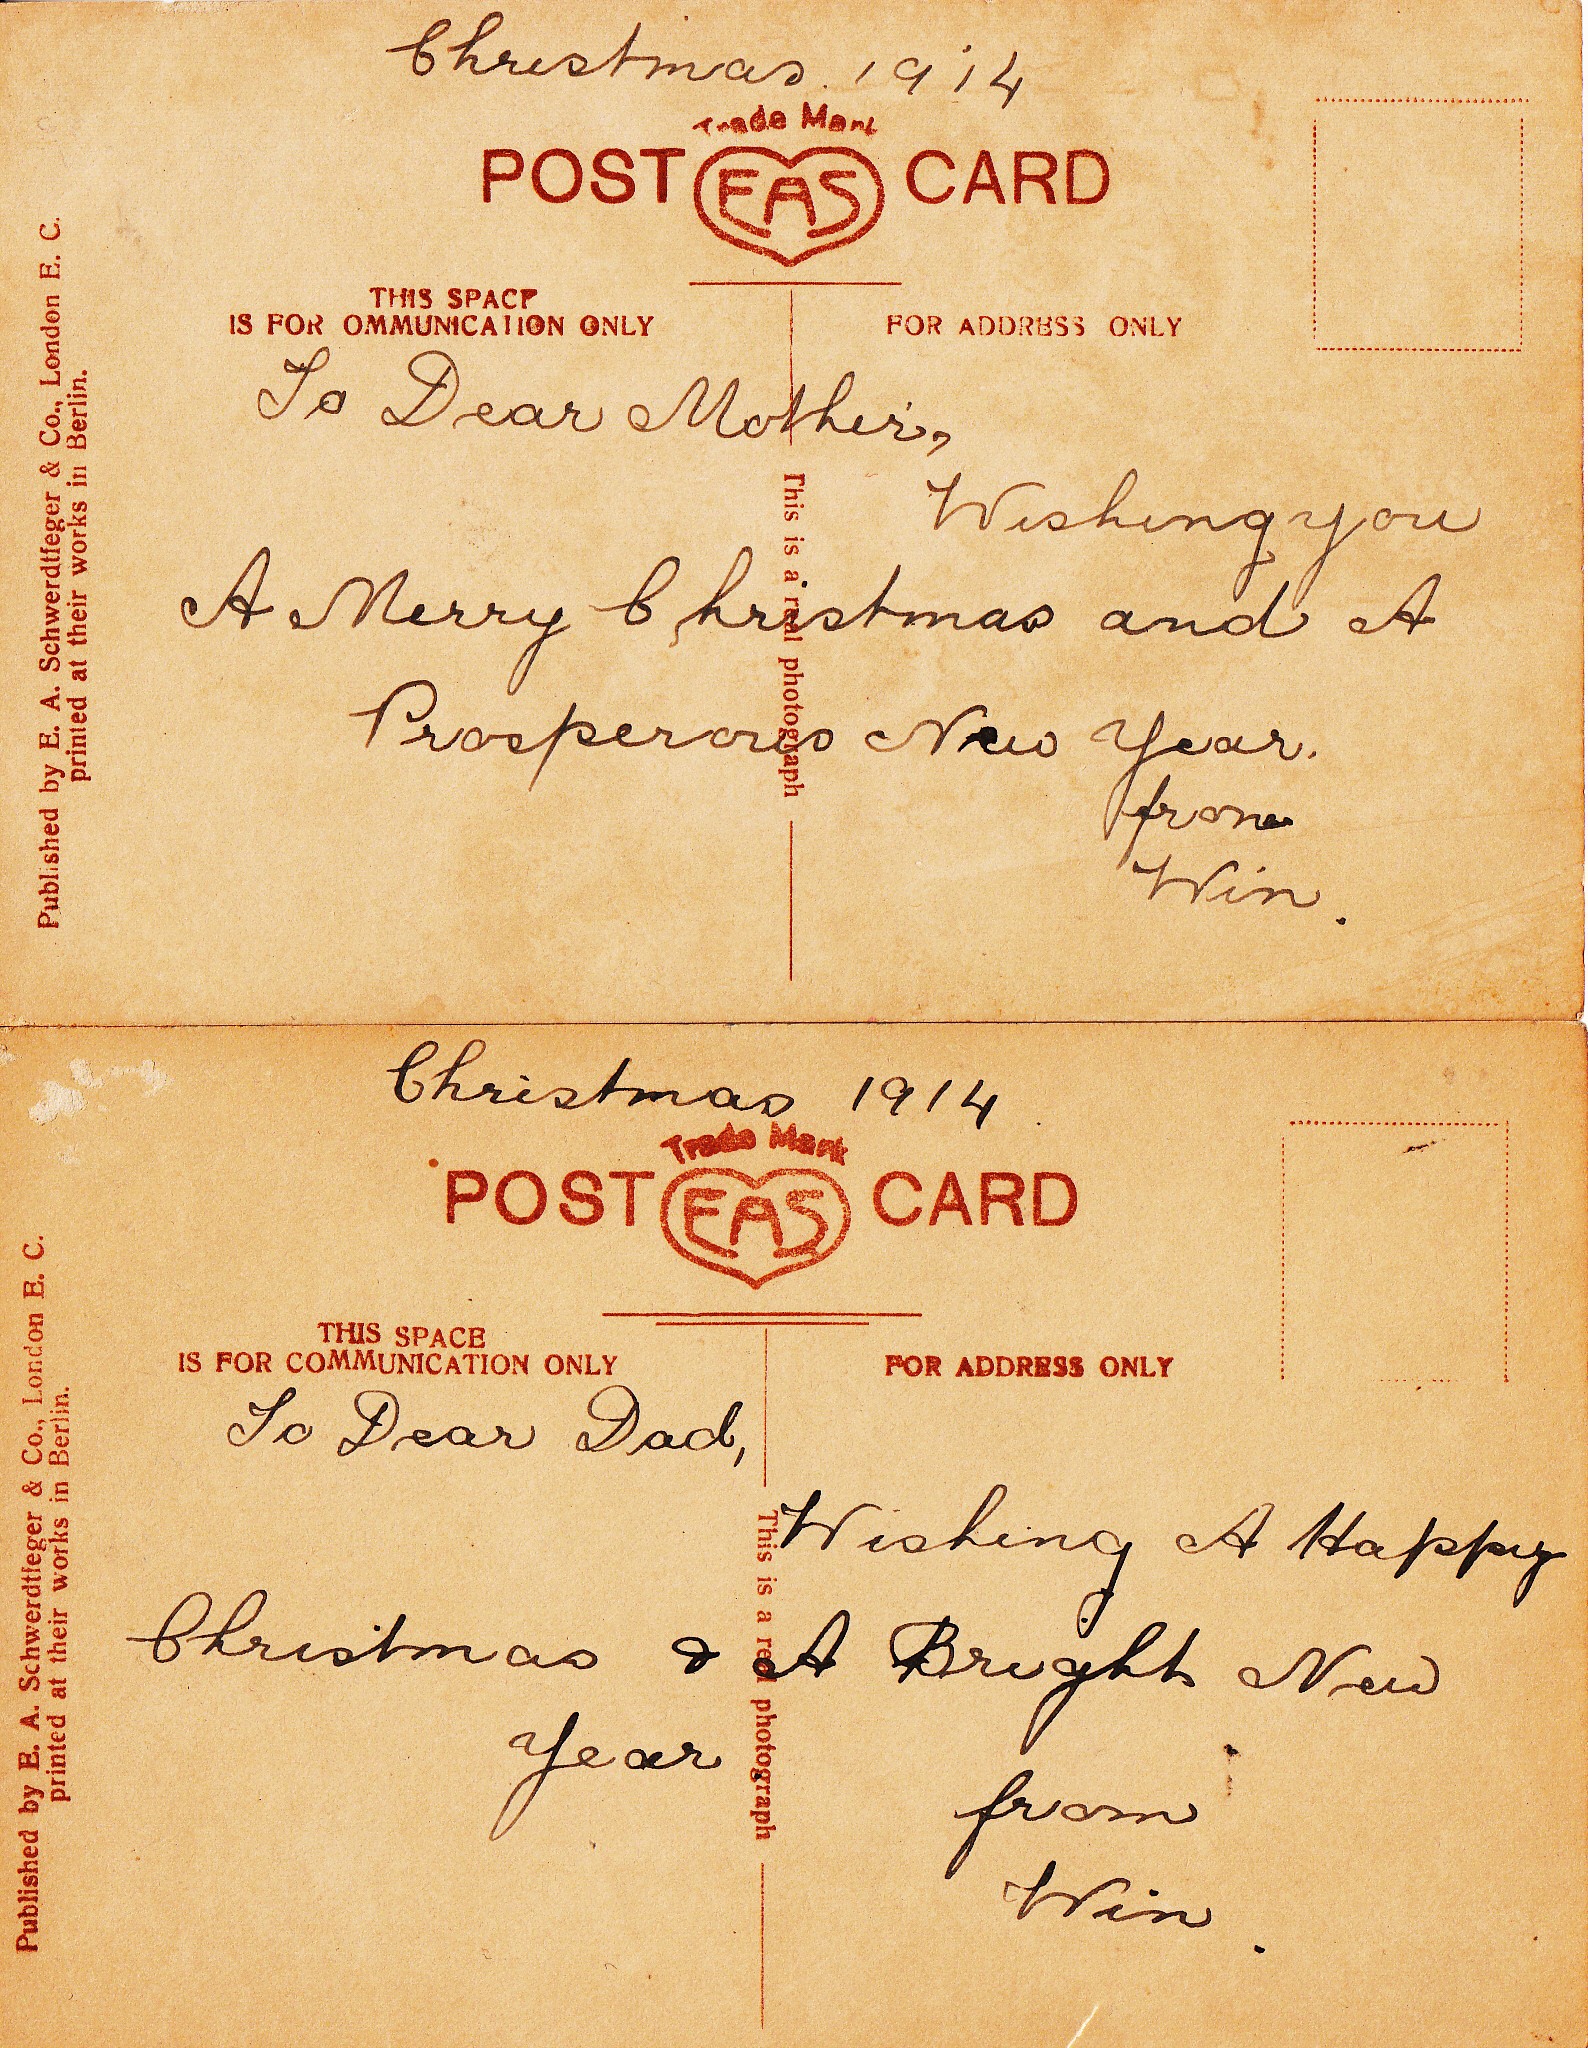 Christmas. 1914
Trade Mark
POST EAS CARD
THIS SPACE
IS FOR OMMUNICATION ONLY
FOR ADDRESS ONLY
To Dear Mother,
Wishing you
A Merry Christmas and A
Prosperous New Year.
from
Win.
This is a real photograph
Published by E. A. Schwerdtfeger & Co., London E. C.
printed at their works in Berlin.
Christmas 1914
Trade Mark
POST EAS CARD
THIS SPACE
IS FOR COMMUNICATION ONLY
FOR ADDRESS ONLY
To Dear Dad,
Wishing A Happy
Christmas & A Bright New
Year
from
Win.
This is a real photograph
Published by E. A. Schwerdtfeger & Co., London E. C.
printed at their works in Berlin.